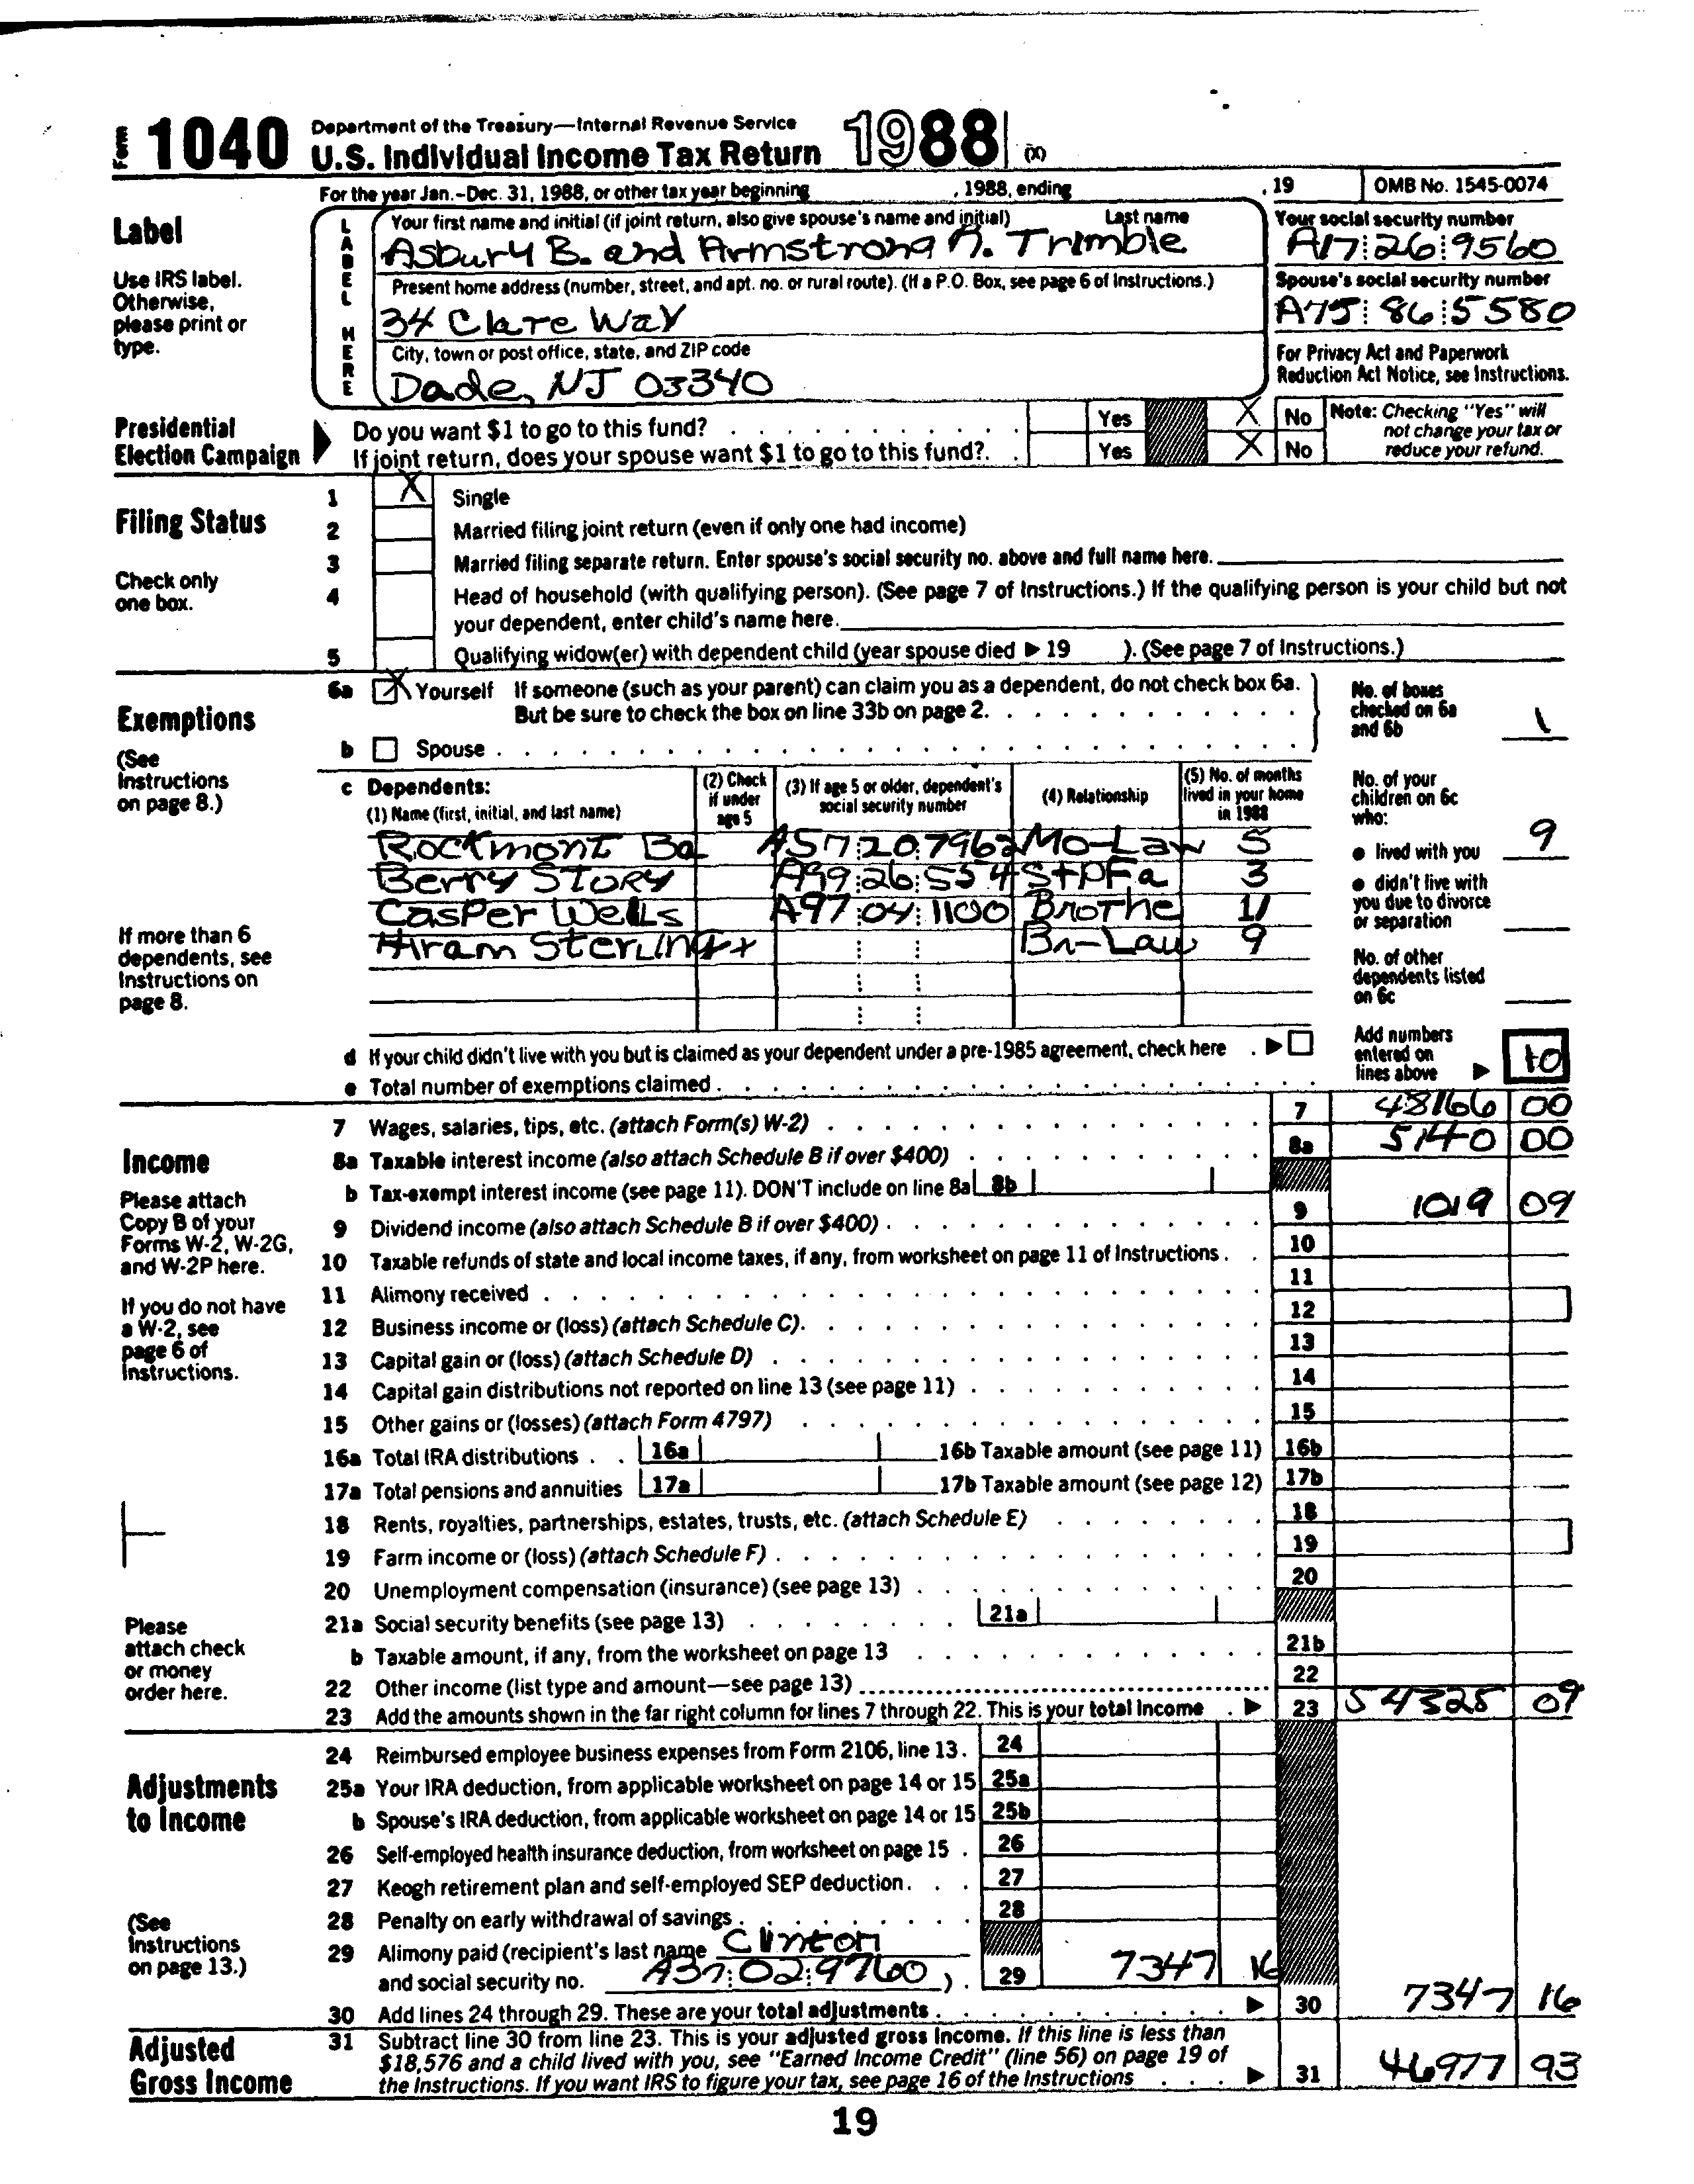 Form 1040 Department of the Treasury—Internal Revenue Service
U.S. Individual Income Tax Return 1988 (X)
For the year Jan.-Dec. 31, 1988, or other tax year beginning , 1988, ending , 19 OMB No. 1545-0074
Label
Use IRS label.
Otherwise,
please print or
type.
LABEL HERE
Your first name and initial (if joint return, also give spouse's name and initial) Last name
Asbury B. and Armstrong A. Trimble
Your social security number
A17 26 9560
Present home address (number, street, and apt. no. or rural route). (If a P.O. Box, see page 6 of Instructions.)
34 Clare Way
Spouse's social security number
A75 86 5580
City, town or post office, state, and ZIP code
Dade, NJ 03340
For Privacy Act and Paperwork
Reduction Act Notice, see Instructions.
Presidential
Election Campaign
Do you want $1 to go to this fund? Yes X No
If joint return, does your spouse want $1 to go to this fund?. Yes X No
Note: Checking "Yes" will
not change your tax or
reduce your refund.
Filing Status
Check only
one box.
1 X Single
2 Married filing joint return (even if only one had income)
3 Married filing separate return. Enter spouse's social security no. above and full name here.
4 Head of household (with qualifying person). (See page 7 of Instructions.) If the qualifying person is your child but not
your dependent, enter child's name here.
5 Qualifying widow(er) with dependent child (year spouse died ▶ 19 ). (See page 7 of Instructions.)
Exemptions
(See
Instructions
on page 8.)
If more than 6
dependents, see
Instructions on
page 8.
6a X Yourself If someone (such as your parent) can claim you as a dependent, do not check box 6a.
But be sure to check the box on line 33b on page 2.
b Spouse
No. of boxes
checked on 6a
and 6b 1
c Dependents:
(1) Name (first, initial, and last name)
(2) Check
if under
age 5
(3) If age 5 or older, dependent's
social security number
(4) Relationship
(5) No. of months
lived in your home
in 1988
Rockmont Ba A57 20 7962 Mo-Law 5
Berry Story A99 26 554 StpFa 3
Casper Wells A97 04 1100 Brothe 11
Hiram Sterling x Br-Law 9
No. of your
children on 6c
who:
● lived with you 9
● didn't live with
you due to divorce
or separation
No. of other
dependents listed
on 6c
d If your child didn't live with you but is claimed as your dependent under a pre-1985 agreement, check here . ▶
e Total number of exemptions claimed
Add numbers
entered on
lines above ▶ 10
Income
Please attach
Copy B of your
Forms W-2, W-2G,
and W-2P here.
If you do not have
a W-2, see
page 6 of
Instructions.
Please
attach check
or money
order here.
7 Wages, salaries, tips, etc. (attach Form(s) W-2) 7 48166 00
8a Taxable interest income (also attach Schedule B if over $400) 8a 5140 00
b Tax-exempt interest income (see page 11). DON'T include on line 8a 8b
9 Dividend income (also attach Schedule B if over $400) 9 1019 09
10 Taxable refunds of state and local income taxes, if any, from worksheet on page 11 of Instructions 10
11 Alimony received 11
12 Business income or (loss) (attach Schedule C). 12
13 Capital gain or (loss) (attach Schedule D) 13
14 Capital gain distributions not reported on line 13 (see page 11) 14
15 Other gains or (losses) (attach Form 4797) 15
16a Total IRA distributions 16a 16b Taxable amount (see page 11) 16b
17a Total pensions and annuities 17a 17b Taxable amount (see page 12) 17b
18 Rents, royalties, partnerships, estates, trusts, etc. (attach Schedule E) 18
19 Farm income or (loss) (attach Schedule F) 19
20 Unemployment compensation (insurance) (see page 13) 20
21a Social security benefits (see page 13) 21a
b Taxable amount, if any, from the worksheet on page 13 21b
22 Other income (list type and amount—see page 13) 22
23 Add the amounts shown in the far right column for lines 7 through 22. This is your total income ▶ 23 54325 09
Adjustments
to Income
(See
Instructions
on page 13.)
24 Reimbursed employee business expenses from Form 2106, line 13. 24
25a Your IRA deduction, from applicable worksheet on page 14 or 15 25a
b Spouse's IRA deduction, from applicable worksheet on page 14 or 15 25b
26 Self-employed health insurance deduction, from worksheet on page 15 26
27 Keogh retirement plan and self-employed SEP deduction 27
28 Penalty on early withdrawal of savings 28
29 Alimony paid (recipient's last name Clinton
and social security no. A37 02 9760 ). 29 7347 16
30 Add lines 24 through 29. These are your total adjustments ▶ 30 7347 16
Adjusted
Gross Income
31 Subtract line 30 from line 23. This is your adjusted gross income. If this line is less than
$18,576 and a child lived with you, see "Earned Income Credit" (line 56) on page 19 of
the Instructions. If you want IRS to figure your tax, see page 16 of the Instructions ▶ 31 46977 93
19